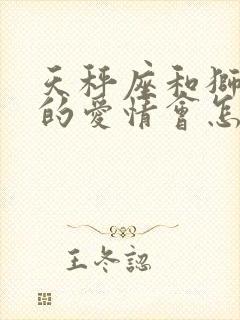 天秤座和獅
的愛情會怎
王冬認